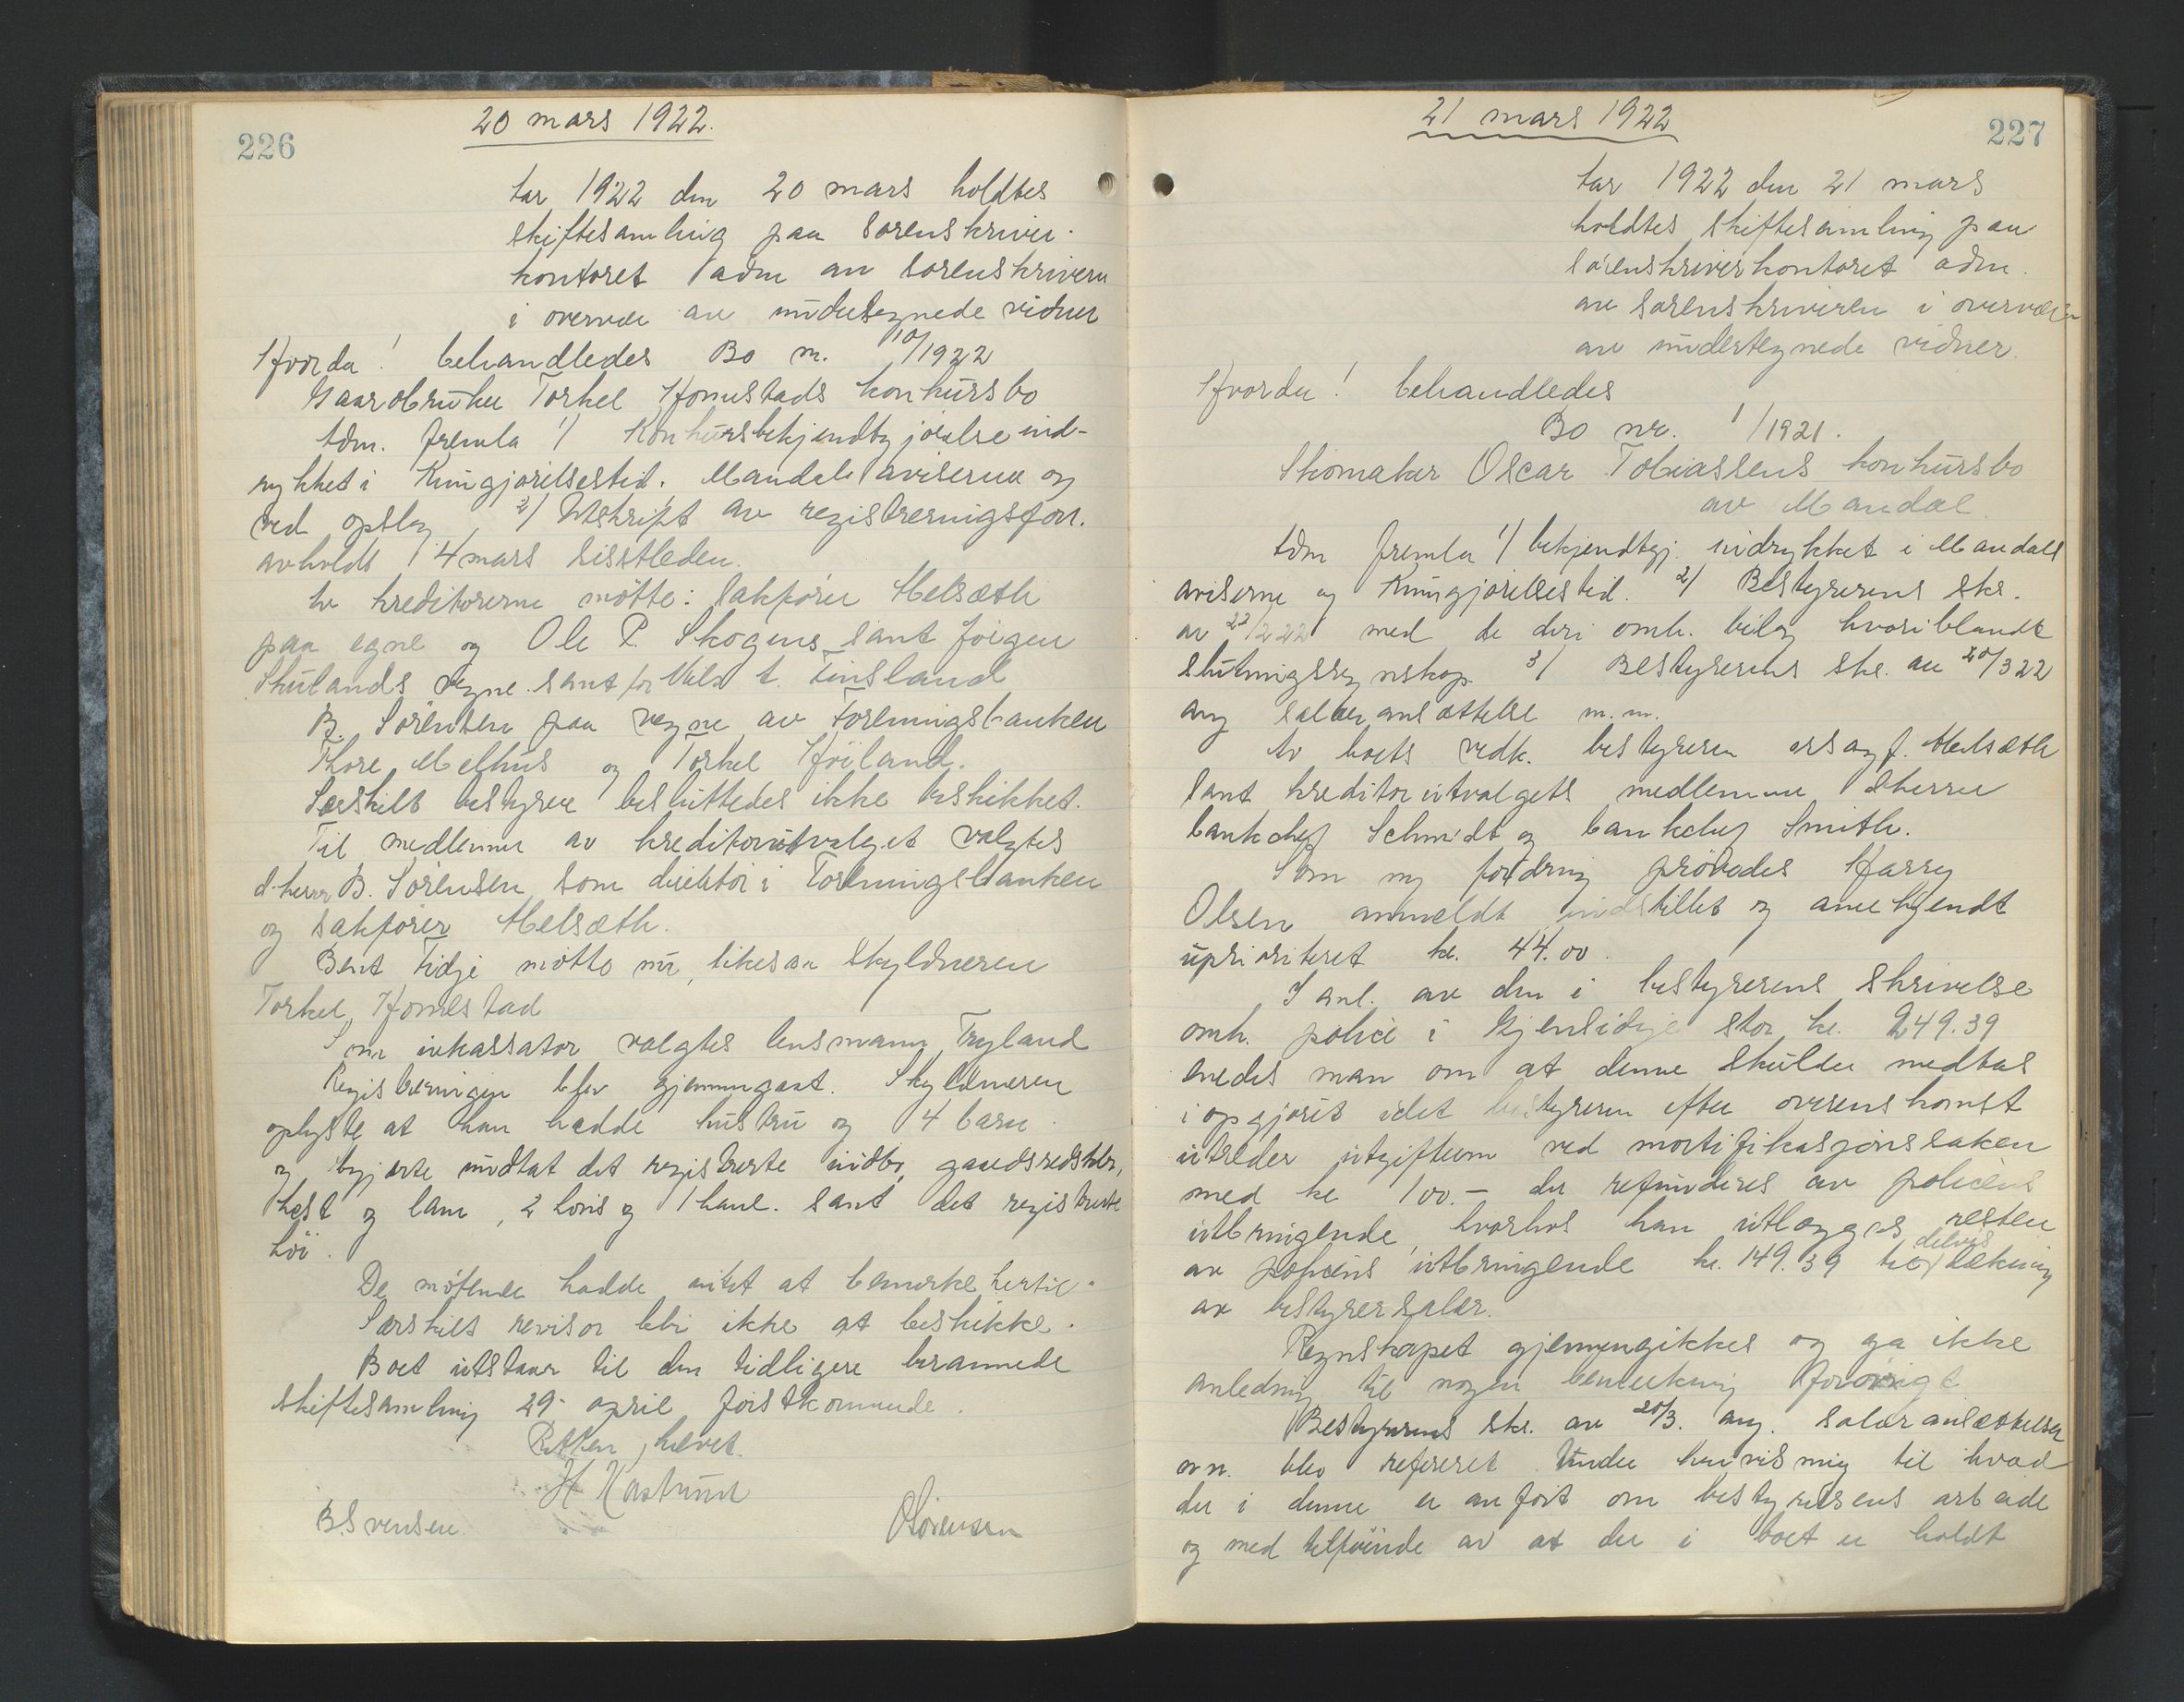 226
20 mars 1922.
Aar 1922 den 20 mars holdtes
skiftesamling paa sorenskriver-
kontoret adm av sorenskriveren
i overvær av undertegnede vidner
Hvorda! behandledes Bo nr. 10/1922
Gaardbruker Torkel Homestads konkursbo
Adm. fremla 1/ Konkursbekjendtgjørelse ind-
rykket i Kungjørelsestid. Mandals aviserne og
ved opslag, 2/ Utskrift av registreringsforr.
avholdt 4 mars sisstleden.
Av kreditorerne møtte: Sakfører Helsæth
paa egne og Ole P. Skogens samt Jørgen
Skulands vegne samt for Nils T. Finsland
B. Sørensen paa vegne av Foreningsbanken
Thore Melhus og Torkel Høiland.
Særskilt bestyrer besluttedes ikke beskikket.
Til medlemmer av kreditorutvalget valgtes
d'herrer B. Sörensen som direktör i Foreningsbanken
og sakfører Helsæth.
Bent Fidje møtte nu, likesaa skyldneren
Torkel Homestad
Som inkassator valgtes lensmann Tryland
Registreringen blev gjennemgaat. Skyldneren
oplyste at han hadde hustru og 4 barn
og begjærte undtat det registrerte indbo, gaardsredskaber,
hest og lam, 2 höns og 1 hane. samt det registrerte
höi.
De møtende hadde intet at bemerke hertil.
Særskilt revisor blir ikke at beskikke.
Boet utstaar til den tidligere berammede
skiftesamling 29. april førstkommende.
Retten hævet.
B. Svensen OSørensen
227
21 mars 1922
Aar 1922 den 21 mars
holdtes skiftesamling paa
sorenskriverkontoret adm.
av sorenskriveren i overvær
av undertegnede vidner.
Hvorda! behandledes
Bo nr. 1/1921.
Skomaker Oscar Tobiassens konkursbo
av Mandal.
Adm fremla 1/ bekjendtgj. indrykket i Mandals
aviserne og Kungjørelsestid. 2/ Bestyrerens skr.
av 22/2 22 med de deri omh. bilag hvoriblandt
slutningsregnskap 3/ Bestyrerens skr. av 20/3 22
ang salæransættelse m.m.
Av boets vedk. bestyreren orsagf. Helsæth
samt kreditorutvalgets medlemmer d'herrer
bankchef Schmidt og bankchef Smith.
Som ny fordring prøvedes Harry
Olsen anmeldt indstillet og anerkjendt
uprioritert kr. 44.00.
I anl. av den i bestyrerens skrivelse
omh. police i Gjensidige stor kr. 249.39
enedes man om at denne skulde medtas
i opgjöret idet bestyreren efter overenskomst
utreder utgifterne ved mortifikasjonssaken
med kr 100.- der refunderes av policens
utbringende, hvorhos han utlægges resten
av policens utbringende kr. 149.39 til delvis dekning
av bestyrersalær.
Regnskapet gjennemgikkes og ga ikke
anledning til nogen bemerkning forøvrigt
Bestyrerens skr. av 20/3. ang. salæransættelsen
m.m. blev refereret. Under henvisning til hvad
der i denne er anført om bestyrerens arbeide
og med tilføiende av at der i boet er holdt